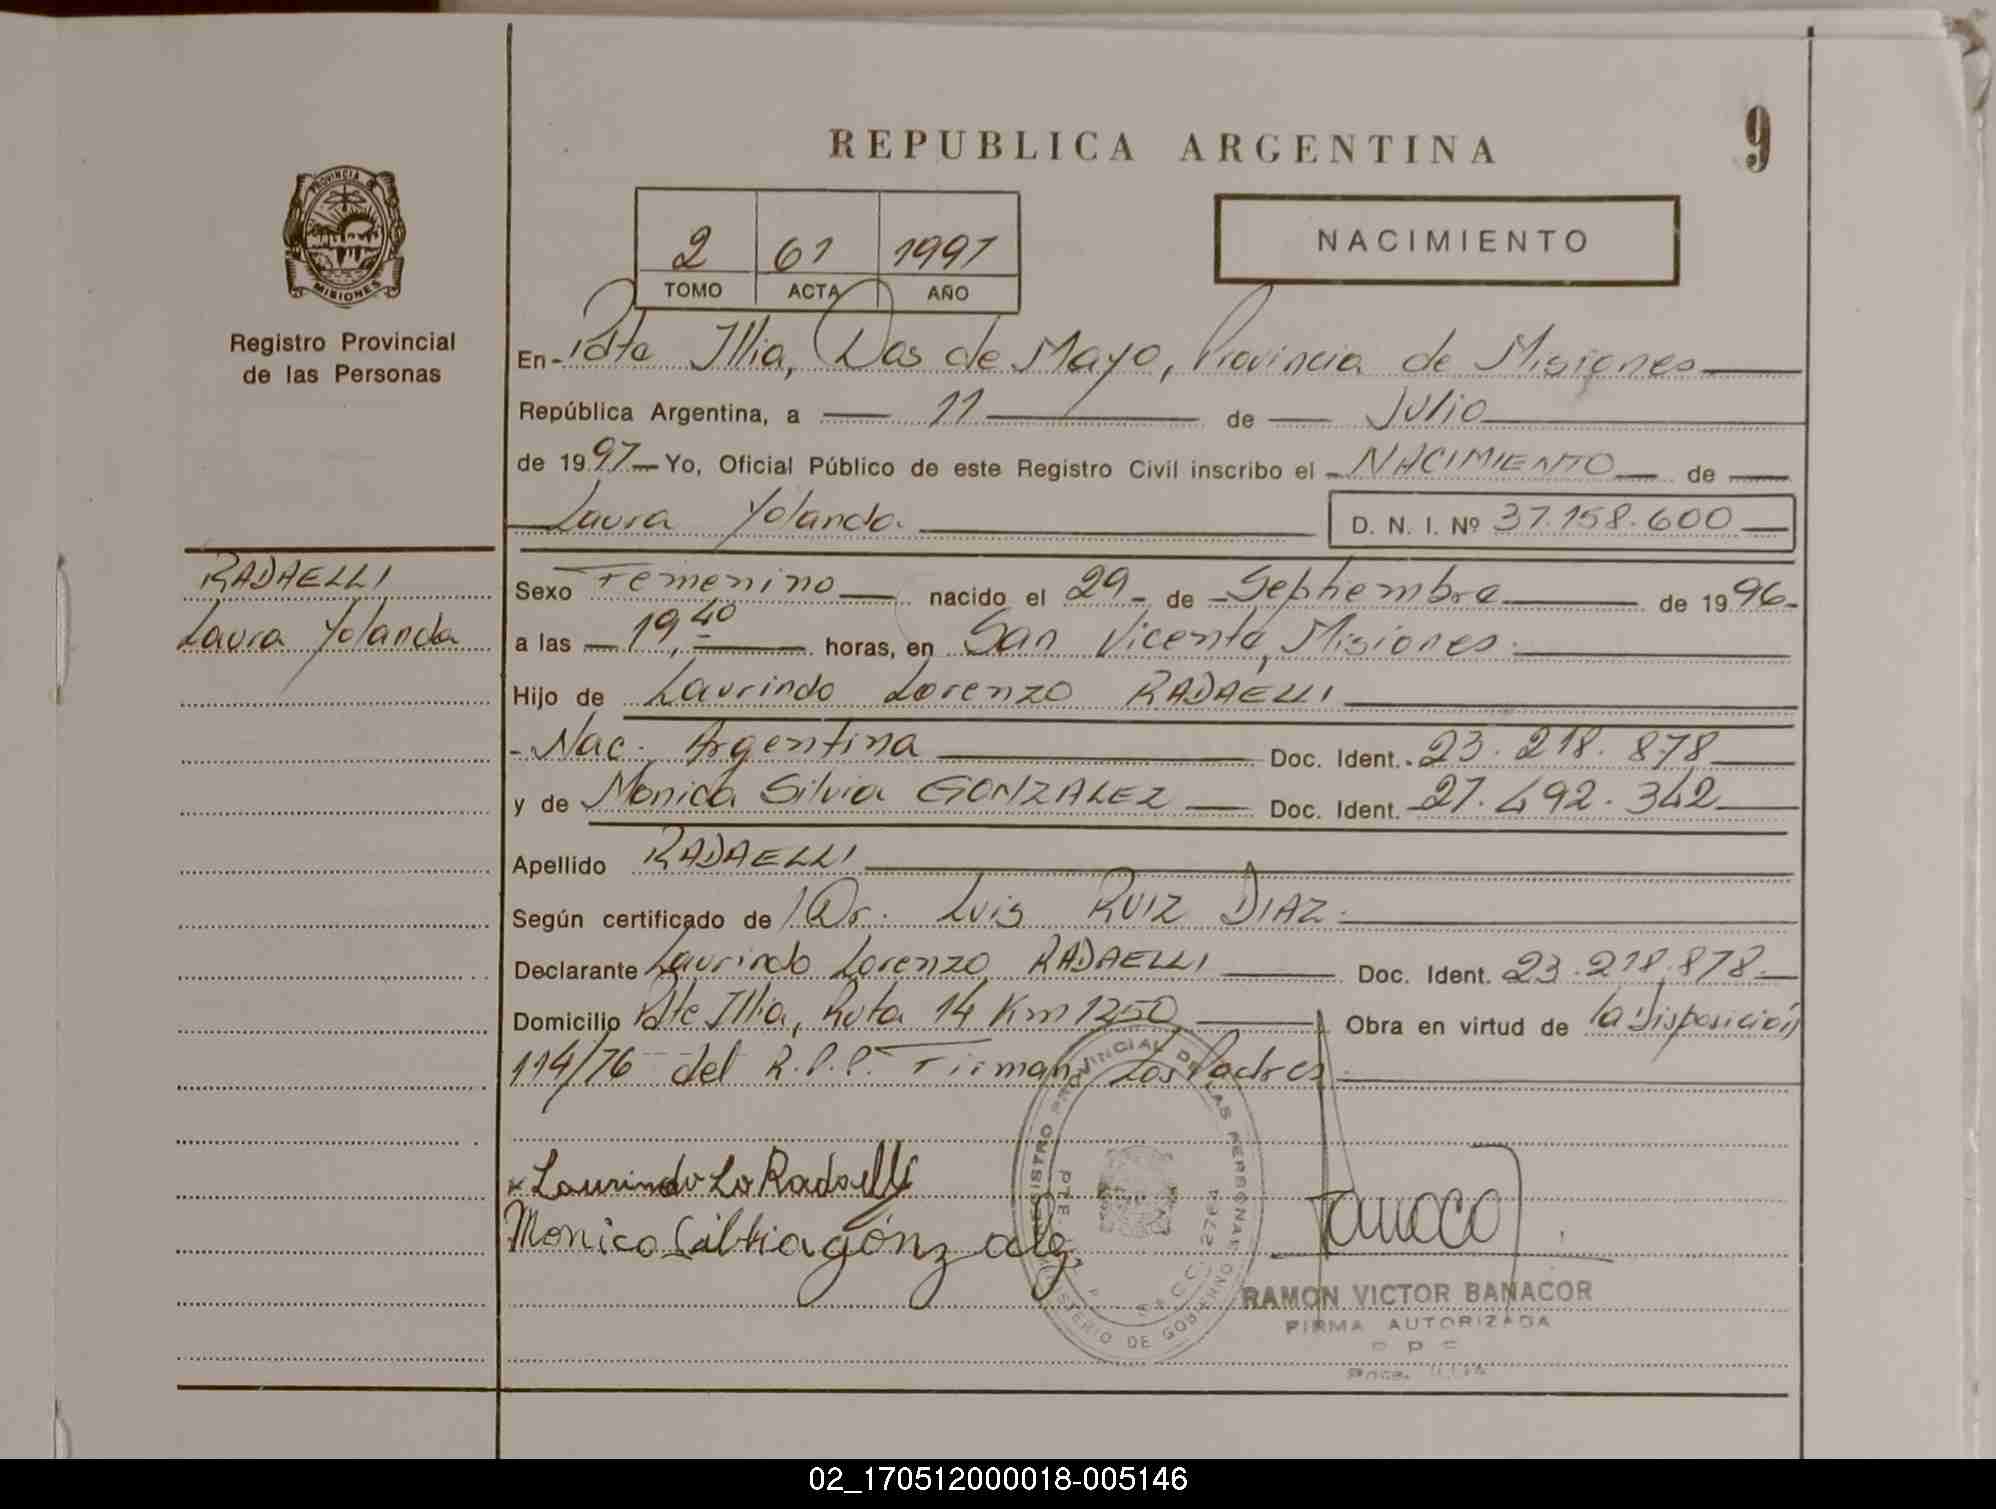 REPUBLICA ARGENTINA
9
PROVINCIA DE
MISIONES
Registro Provincial
de las Personas
2 61 1997
TOMO ACTA AÑO
NACIMIENTO
En - Pdte Illia, Dos de Mayo, Provincia de Misiones
República Argentina, a 11 de Julio
de 1997 Yo, Oficial Público de este Registro Civil inscribo el NACIMIENTO de
Laura Yolanda D. N. I. Nº 37.158.600
RADAELLI
Laura Yolanda
Sexo Femenino nacido el 29 de Septiembre de 1996
a las 19,40 horas, en San Vicente, Misiones.
Hijo de Laurindo Lorenzo RADAELLI
Nac. Argentina Doc. Ident. 23.218.878
y de Monica Silvia GONZALEZ Doc. Ident. 27.492.342
Apellido RADAELLI
Según certificado de Dr. Luis RUIZ DIAZ.
Declarante Laurindo Lorenzo RADAELLI Doc. Ident. 23.218.878
Domicilio Pdte Illia, Ruta 14 Km 1250 Obra en virtud de la Disposición
114/76 del R.P.P. Firman Los Padres
Laurindo Lo Radaelli
Monica Silvia gónzalez
REGISTRO PROVINCIAL DE LAS PERSONAS
MINISTERIO DE GOBIERNO
PTE.
SECC. 2764
RAMON VICTOR BANACOR
FIRMA AUTORIZADA
02_170512000018-005146